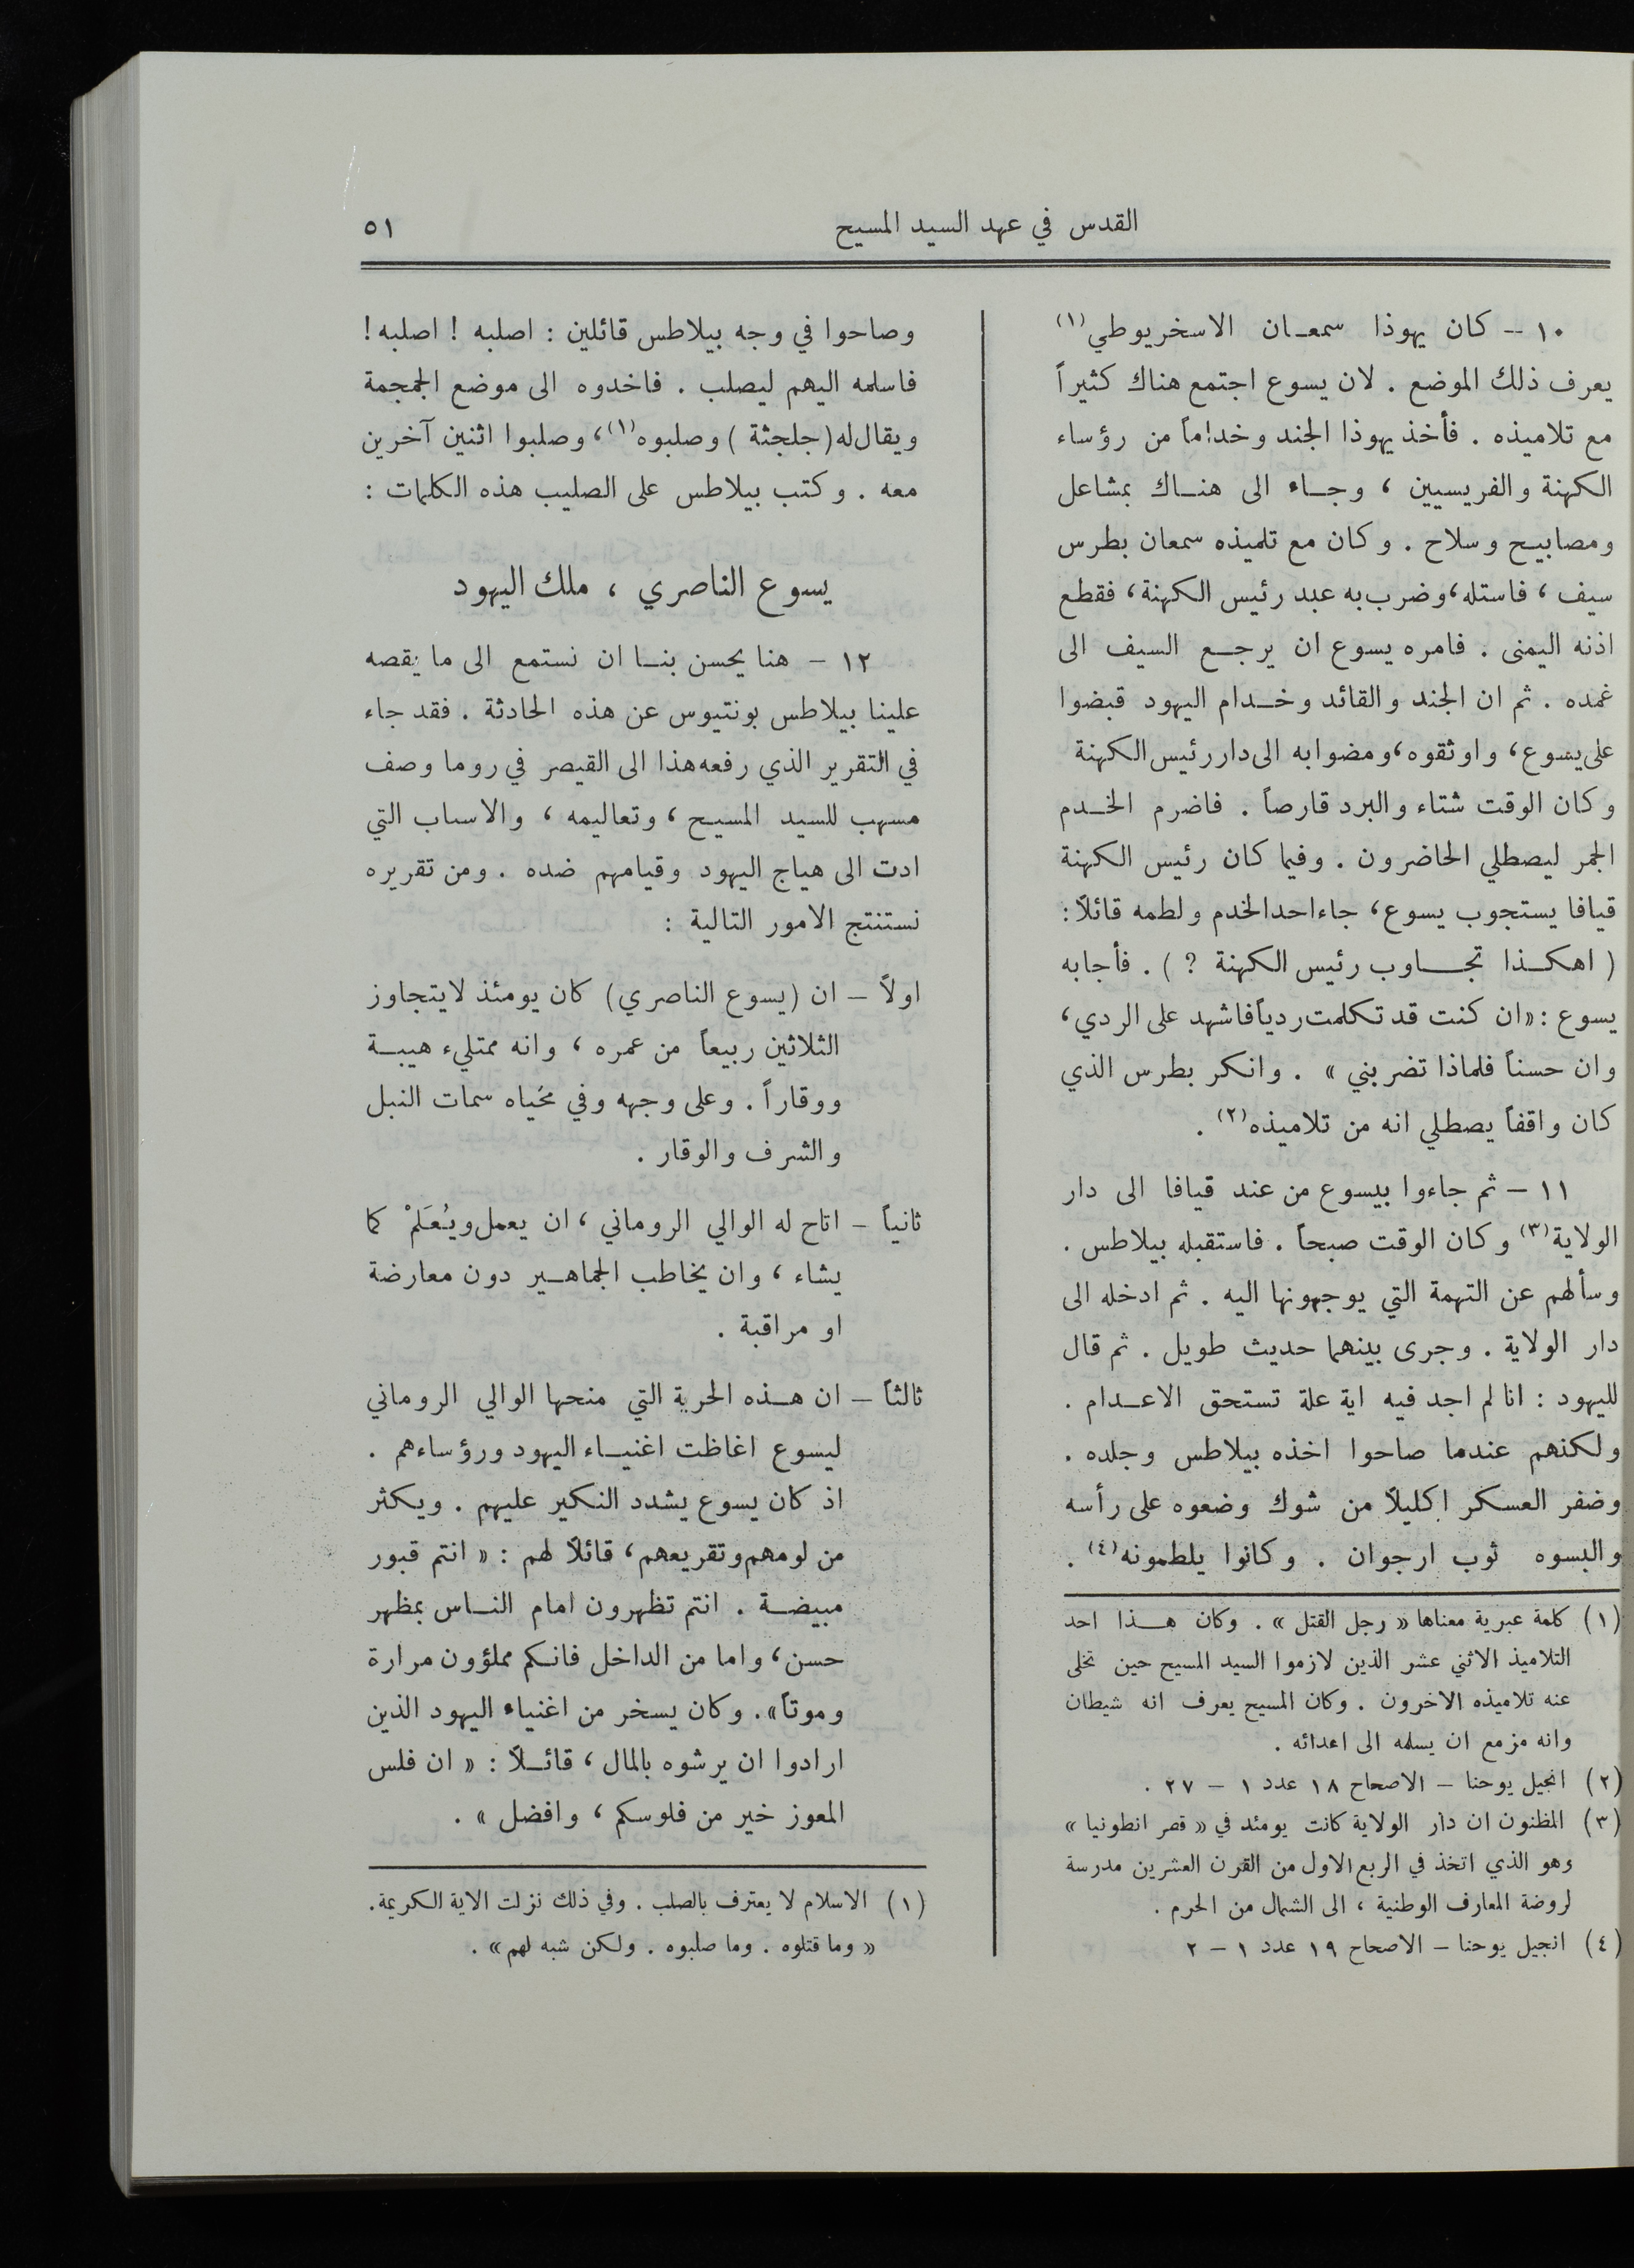 القدس في عهد السيد المسيح
٥١
١٠ – كان يهوذا سمعان الاسخريوطي(١)
يعرف ذلك الموضع . لان يسوع اجتمع هناك كثيراً
مع تلاميذه . فأخذ يهوذا الجند وخداماً من رؤساء
الكهنة والفريسيين ، وجاء الى هناك بمشاعل
ومصابيح وسلاح . وكان مع تلميذه سمعان بطرس
سيف ، فاستله ، وضرب به عبد رئيس الكهنة ، فقطع
اذنه اليمنى . فامره يسوع ان يرجع السيف الى
غمده . ثم ان الجند والقائد وخدام اليهود قبضوا
على يسوع ، واوثقوه ، ومضوا به الى دار رئيس الكهنة
وكان الوقت شتاء والبرد قارصاً . فاضرم الخدم
الجمر ليصطلي الحاضرون . وفيما كان رئيس الكهنة
قيافا يستجوب يسوع ، جاء احد الخدم ولطمه قائلاً :
( اهكذا تجاوب رئيس الكهنة ؟ ) . فأجابه
يسوع : « ان كنت قد تكلمت ردياً فاشهد على الردي ،
وان حسناً فلماذا تضربني » . وانكر بطرس الذي
كان واقفاً يصطلي انه من تلاميذه(٢) .
١١ – ثم جاءوا بيسوع من عند قيافا الى دار
الولاية(٣) وكان الوقت صبحاً . فاستقبله بيلاطس .
وسألهم عن التهمة التي يوجهونها اليه . ثم ادخله الى
دار الولاية . وجرى بينهما حديث طويل . ثم قال
لليهود : انا لم اجد فيه اية علة تستحق الاعدام .
ولكنهم عندما صاحوا اخذه بيلاطس وجلده .
وضفر العسكر اكليلاً من شوك وضعوه على رأسه
والبسوه ثوب ارجوان . وكانوا يلطمونه(٤) .
(١) كلمة عبرية معناها « رجل القتل » . وكان هذا احد
التلاميذ الاثني عشر الذين لازموا السيد المسيح حين تخلى
عنه تلاميذه الاخرون . وكان المسيح يعرف انه شيطان
وانه مزمع ان يسلمه الى اعدائه .
(٢) انجيل يوحنا – الاصحاح ١٨ عدد ١ – ٢٧ .
(٣) المظنون ان دار الولاية كانت يومئذ في « قصر انطونيا »
وهو الذي اتخذ في الربع الاول من القرن العشرين مدرسة
لروضة المعارف الوطنية ، الى الشمال من الحرم .
(٤) انجيل يوحنا – الاصحاح ١٩ عدد ١ – ٢
وصاحوا في وجه بيلاطس قائلين : اصلبه ! اصلبه !
فاسلمه اليهم ليصلب . فاخدوه الى موضع الجمجمة
ويقال له ( جلجثة ) وصلبوه(١) ، وصلبوا اثنين آخرين
معه . وكتب بيلاطس على الصليب هذه الكلمات :
يسوع الناصري ، ملك اليهود
١٢ – هنا يحسن بنا ان نستمع الى ما يقصه
علينا بيلاطس بونتيوس عن هذه الحادثة . فقد جاء
في التقرير الذي رفعه هذا الى القيصر في روما وصف
مسهب للسيد المسيح ، وتعاليمه ، والاسباب التي
ادت الى هياج اليهود وقيامهم ضده . ومن تقريره
نستنتج الامور التالية :
اولاً – ان (يسوع الناصري) كان يومئذ لا يتجاوز
الثلاثين ربيعاً من عمره ، وانه ممتليء هيبة
ووقاراً . وعلى وجهه وفي مُحَياه سمات النبل
والشرف والوقار .
ثانياً – اتاح له الوالي الروماني ، ان يعمل ويُعَلمْ كما
يشاء ، وان يخاطب الجماهير دون معارضة
او مراقبة .
ثالثاً – ان هذه الحرية التي منحها الوالي الروماني
ليسوع اغاظت اغنياء اليهود ورؤساءهم .
اذ كان يسوع يشدد النكير عليهم . ويكثر
من لومهم وتقريعهم ، قائلاً لهم : « انتم قبور
مبيضة . انتم تظهرون امام الناس بمظهر
حسن ، واما من الداخل فانكم مملؤون مرارة
وموتاً » . وكان يسخر من اغنياء اليهود الذين
ارادوا ان يرشوه بالمال ، قائلاً : « ان فلس
المعوز خير من فلوسكم ، وافضل » .
(١) الاسلام لا يعترف بالصلب . وفي ذلك نزلت الاية الكريمة .
« وما قتلوه . وما صلبوه . ولكن شبه لهم » .